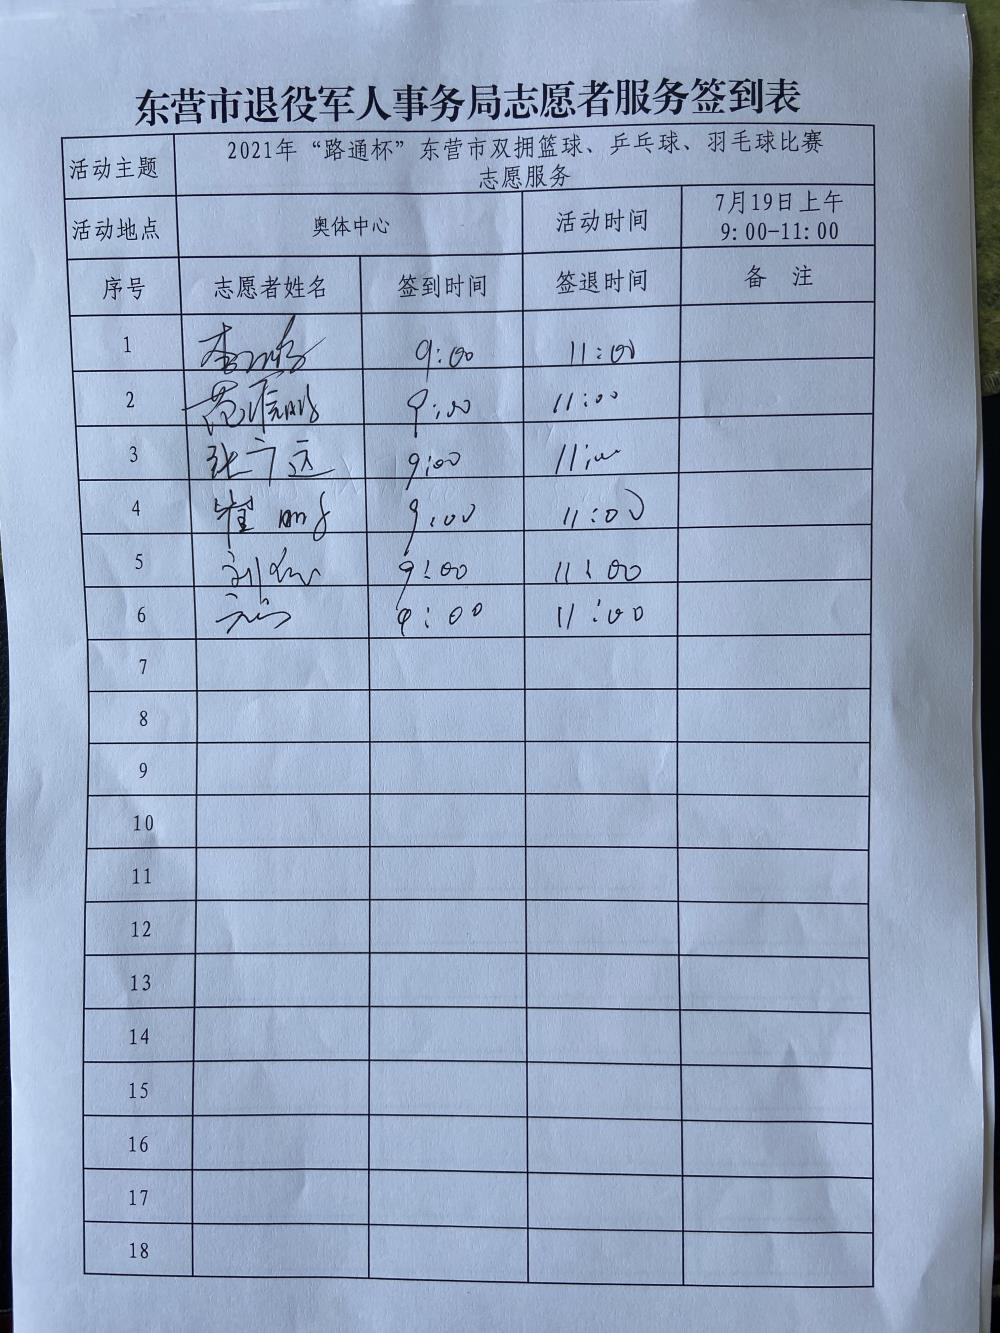 东营市退役军人事务局志愿者服务签到表
活动主题 2021年“路通杯”东营市双拥篮球、乒乓球、羽毛球比赛
志愿服务
活动地点 奥体中心 活动时间 7月19日上午
9:00-11:00
序号 志愿者姓名 签到时间 签退时间 备 注
1 9:00 11:00
2 9:00 11:00
3 张宁远 9:00 11:00
4 崔鹏 9:00 11:00
5 9:00 11:00
6 9:00 11:00
7
8
9
10
11
12
13
14
15
16
17
18